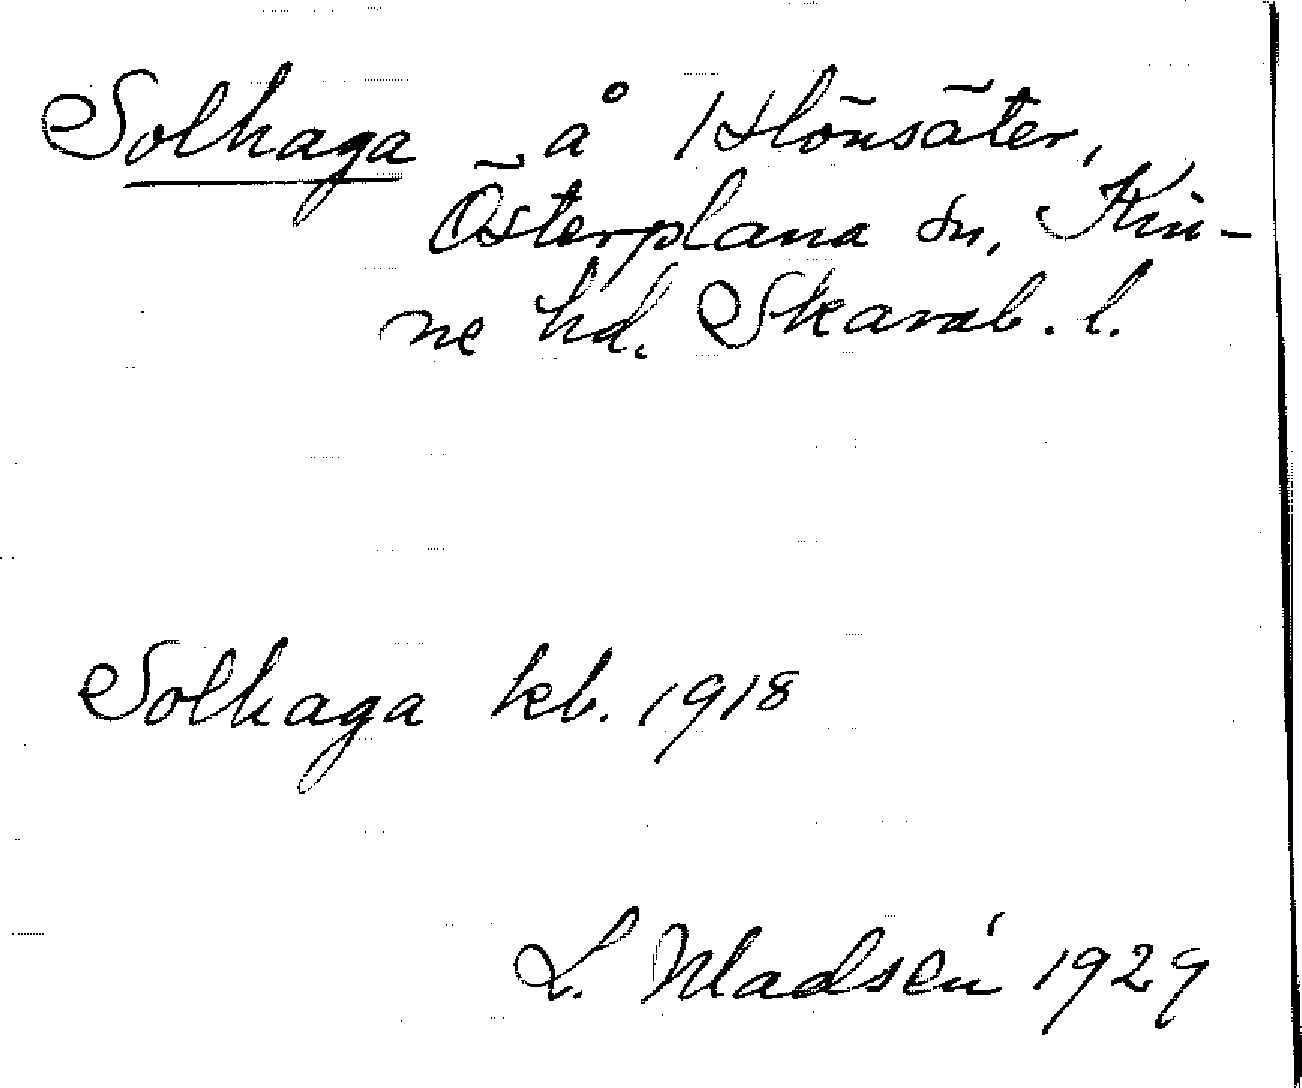 Solhaga å Hönsäter,
Österplana sn, Kin-
ne hd. Skarab. l.
Solhaga kb. 1918
L. Madsén 1929